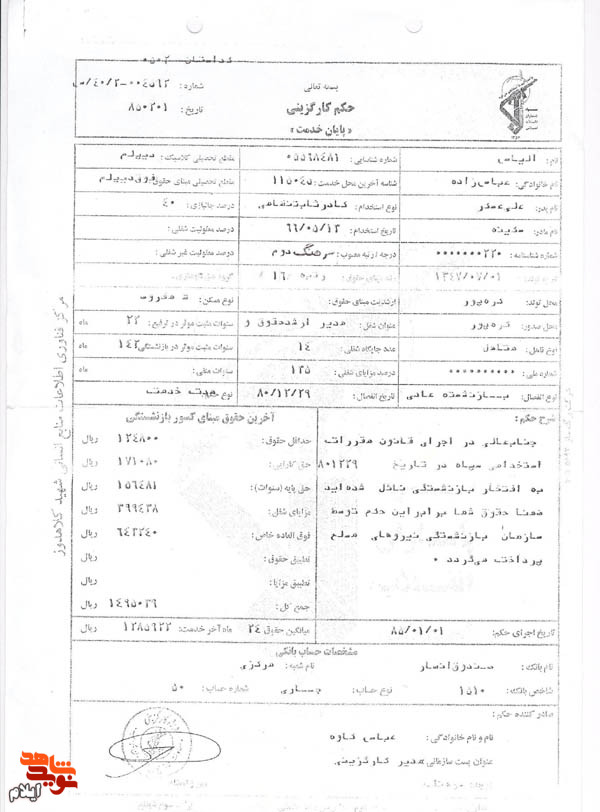 کداستان ۰۵۰۲
بسمه تعالی
حکم کارگزینی
«پایان خدمت»
شماره: ۰۰۴۵۶۲-۴۰/۲/س
تاریخ: ۸۵۰۲۰۱
نام: الیاس
شماره شناسایی: ۰۵۵۶۸۴۸۱
مقطع تحصیلی کلاسیک: دیپلم
نام خانوادگی: عباس زاده
شناسه آخرین محل خدمت: ۱۱۵۰۴۵
مقطع تحصیلی مبنای حقوق: فوق دیپلم
نام پدر: علی عسگر
نوع استخدام: کادرثابت نظامی
درصد جانبازی: ۴۰
نام مادر: سکینه
تاریخ استخدام: ۶۶/۰۵/۱۲
درصد معلولیت شغلی:
شماره شناسنامه: ۰۰۰۰۰۰۰۲۲۰
درجه / رتبه مصوب: سرهنگ دوم
درصد معلولیت غیر شغلی:
۱۳۴۷/۰۷/۰۱
مبنای حقوق: رتبه ۱۶
محل تولد: دره شهر
ارشدیت مبنای حقوق:
نوع مسکن:
محل صدور: دره شهر
عنوان شغل: مدیر ارشد حقوق و
سنوات مثبت موثر در ترفیع: ۲۲ ماه
نوع تاهل: متاهل
عدد جایگاه شغلی: ۱۴
سنوات مثبت موثر در بازنشستگی: ۱۴۲ ماه
شماره ملی: ۰۰۰۰۰۰۰۰۰۰
درصد مزایای شغلی: ۱۲۵
سنوات منفی: ماه
نوع انفصال: بازنشسته عادی
تاریخ انفصال: ۸۰/۱۲/۲۹
نوع خدمت
شرح حکم:
جنابعالی در اجرای قانون مقررات
استخدامی سپاه در تاریخ ۸۰۱۲۲۹
به افتخار بازنشستگی نائل شده اید
ضمنا حقوق شما برابر این حکم توسط
سازمان بازنشستگی نیروهای مسلح
پرداخت می گردد .
آخرین حقوق مبنای کسور بازنشستگی
حداقل حقوق: ۱۲۴۸۰۰ ریال
حق کارایی: ۱۷۱۰۸۰ ریال
حق پایه (سنوات): ۱۵۶۴۸۱ ریال
مزایای شغل: ۳۹۹۴۳۸ ریال
فوق العاده خاص: ۶۴۳۲۴۰ ریال
تطبیق حقوق: ریال
تطبیق مزایا: ریال
جمع کل: ۱۴۹۵۰۳۹ ریال
تاریخ اجرای حکم: ۸۵/۰۱/۰۱
میانگین حقوق ۲۴ ماه آخر خدمت: ۱۲۸۵۶۲۲ ریال
مشخصات حساب بانکی
نام بانک: صندوق انصار
نام شعبه: مرکزی
شاخص بانک: ۱۵۱۰
نوع حساب: جاری
شماره حساب: ۵۰
صادر کننده حکم:
نام و نام خانوادگی: عباس کاوه
عنوان پست سازمانی: مدیر کارگزینی
مرکز فناوری اطلاعات منابع انسانی شهید کلاهدوز
نوید شاهد
ایلام